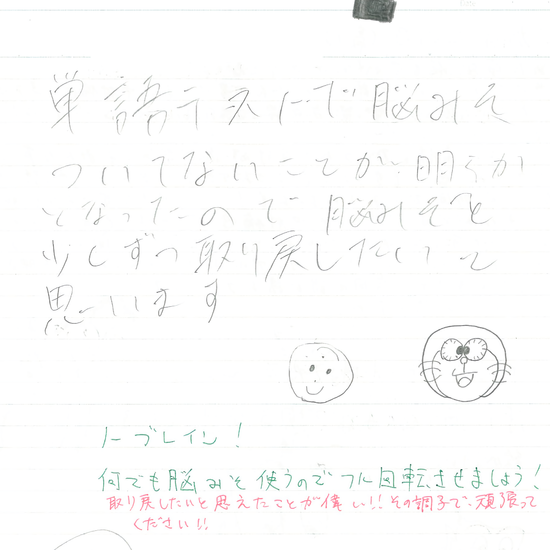 単語テストで脳みそ
ついてないことが明らか
となったので脳みそを
少しずつ取り戻したいと
思います
ノーブレイン!
何でも脳みそ使うのでフル回転させましょう!
取り戻したいと思えたことが偉い!!その調子で、頑張って
ください!!